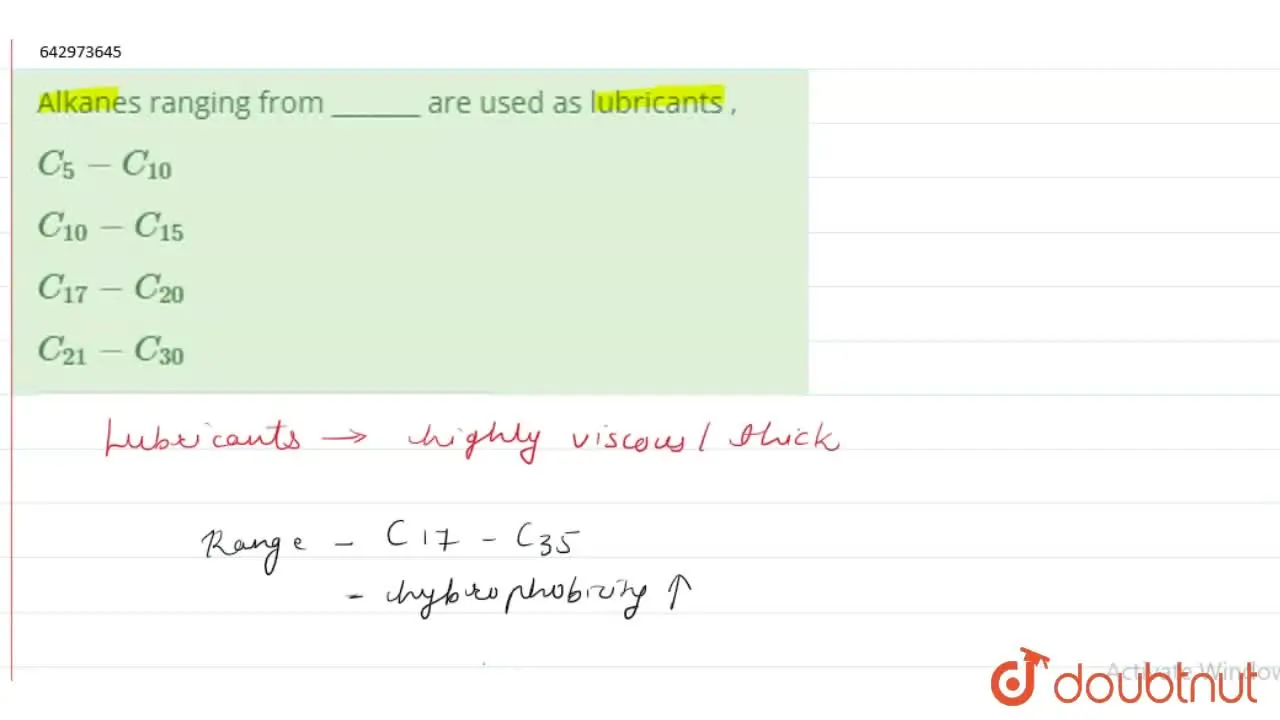 642973645
Alkanes ranging from ______ are used as lubricants ,
C₅ − C₁₀
C₁₀ − C₁₅
C₁₇ − C₂₀
C₂₁ − C₃₀
Lubricants → highly viscous / thick
Range - C17 - C35
- hybrophobicity ↑
Activate Window
doubtnut